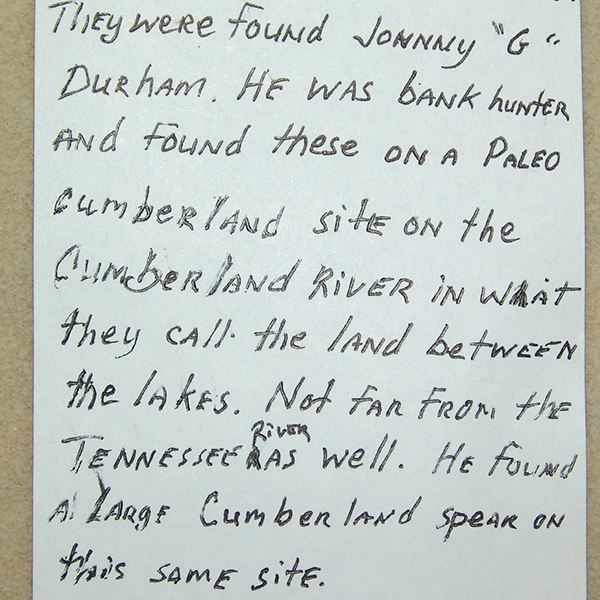 They were found Johnny "G"
Durham. He was bank hunter
and found these on a Paleo
Cumberland site on the
Cumberland River in what
they call the land between
the lakes. Not far from the
River
Tennessee as well. He found
a large Cumberland spear on
this same site.